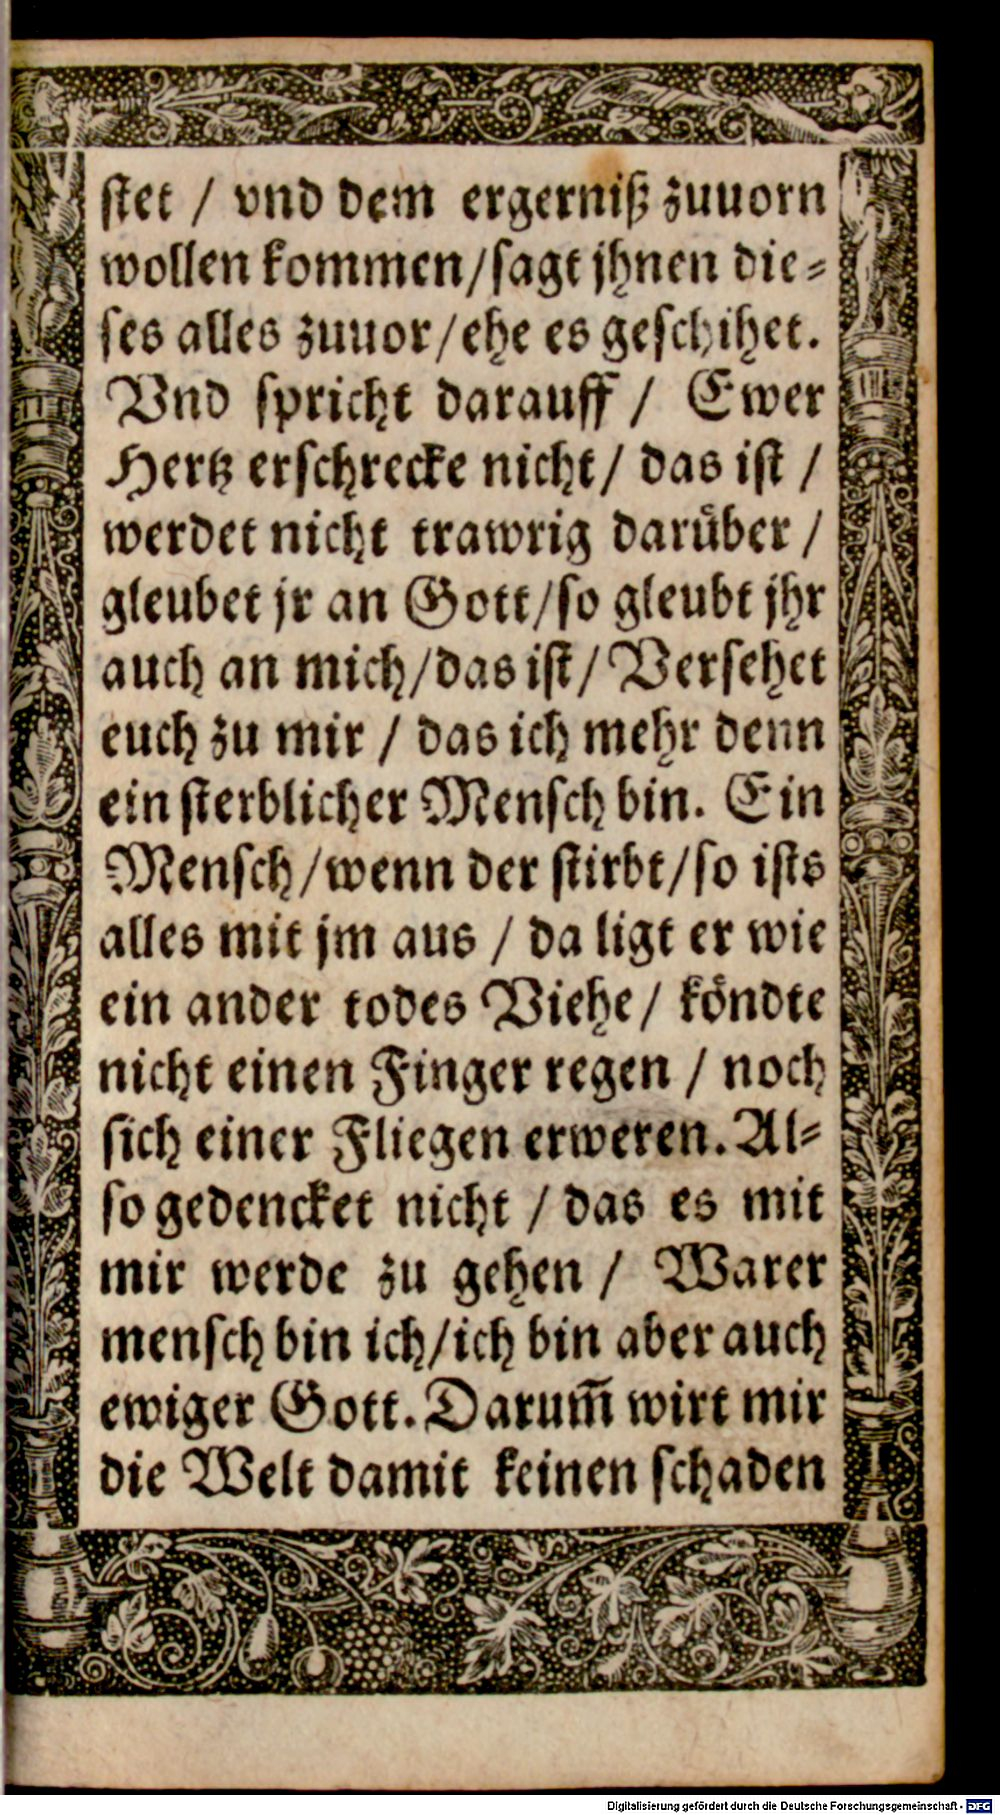 stet / vnd dem ergerniß zuuorn
wollen kommen/sagt jhnen die-
ses alles zuuor/ehe es geschihet.
Vnd spricht darauff / Ewer
Hertz erschrecke nicht/ das ist /
werdet nicht trawrig darüber /
gleubet jr an Gott/so gleubt jhr
auch an mich/das ist/ Versehet
euch zu mir / das ich mehr denn
ein sterblicher Mensch bin. Ein
Mensch/wenn der stirbt/so ists
alles mit jm aus / da ligt er wie
ein ander todes Viehe/ köndte
nicht einen Finger regen / noch
sich einer Fliegen erweren. Al-
so gedencket nicht / das es mit
mir werde zu gehen / Warer
mensch bin ich/ich bin aber auch
ewiger Gott. Darum̅ wirt mir
die Welt damit keinen schaden
Digitalisierung gefördert durch die Deutsche Forschungsgemeinschaft - DFG